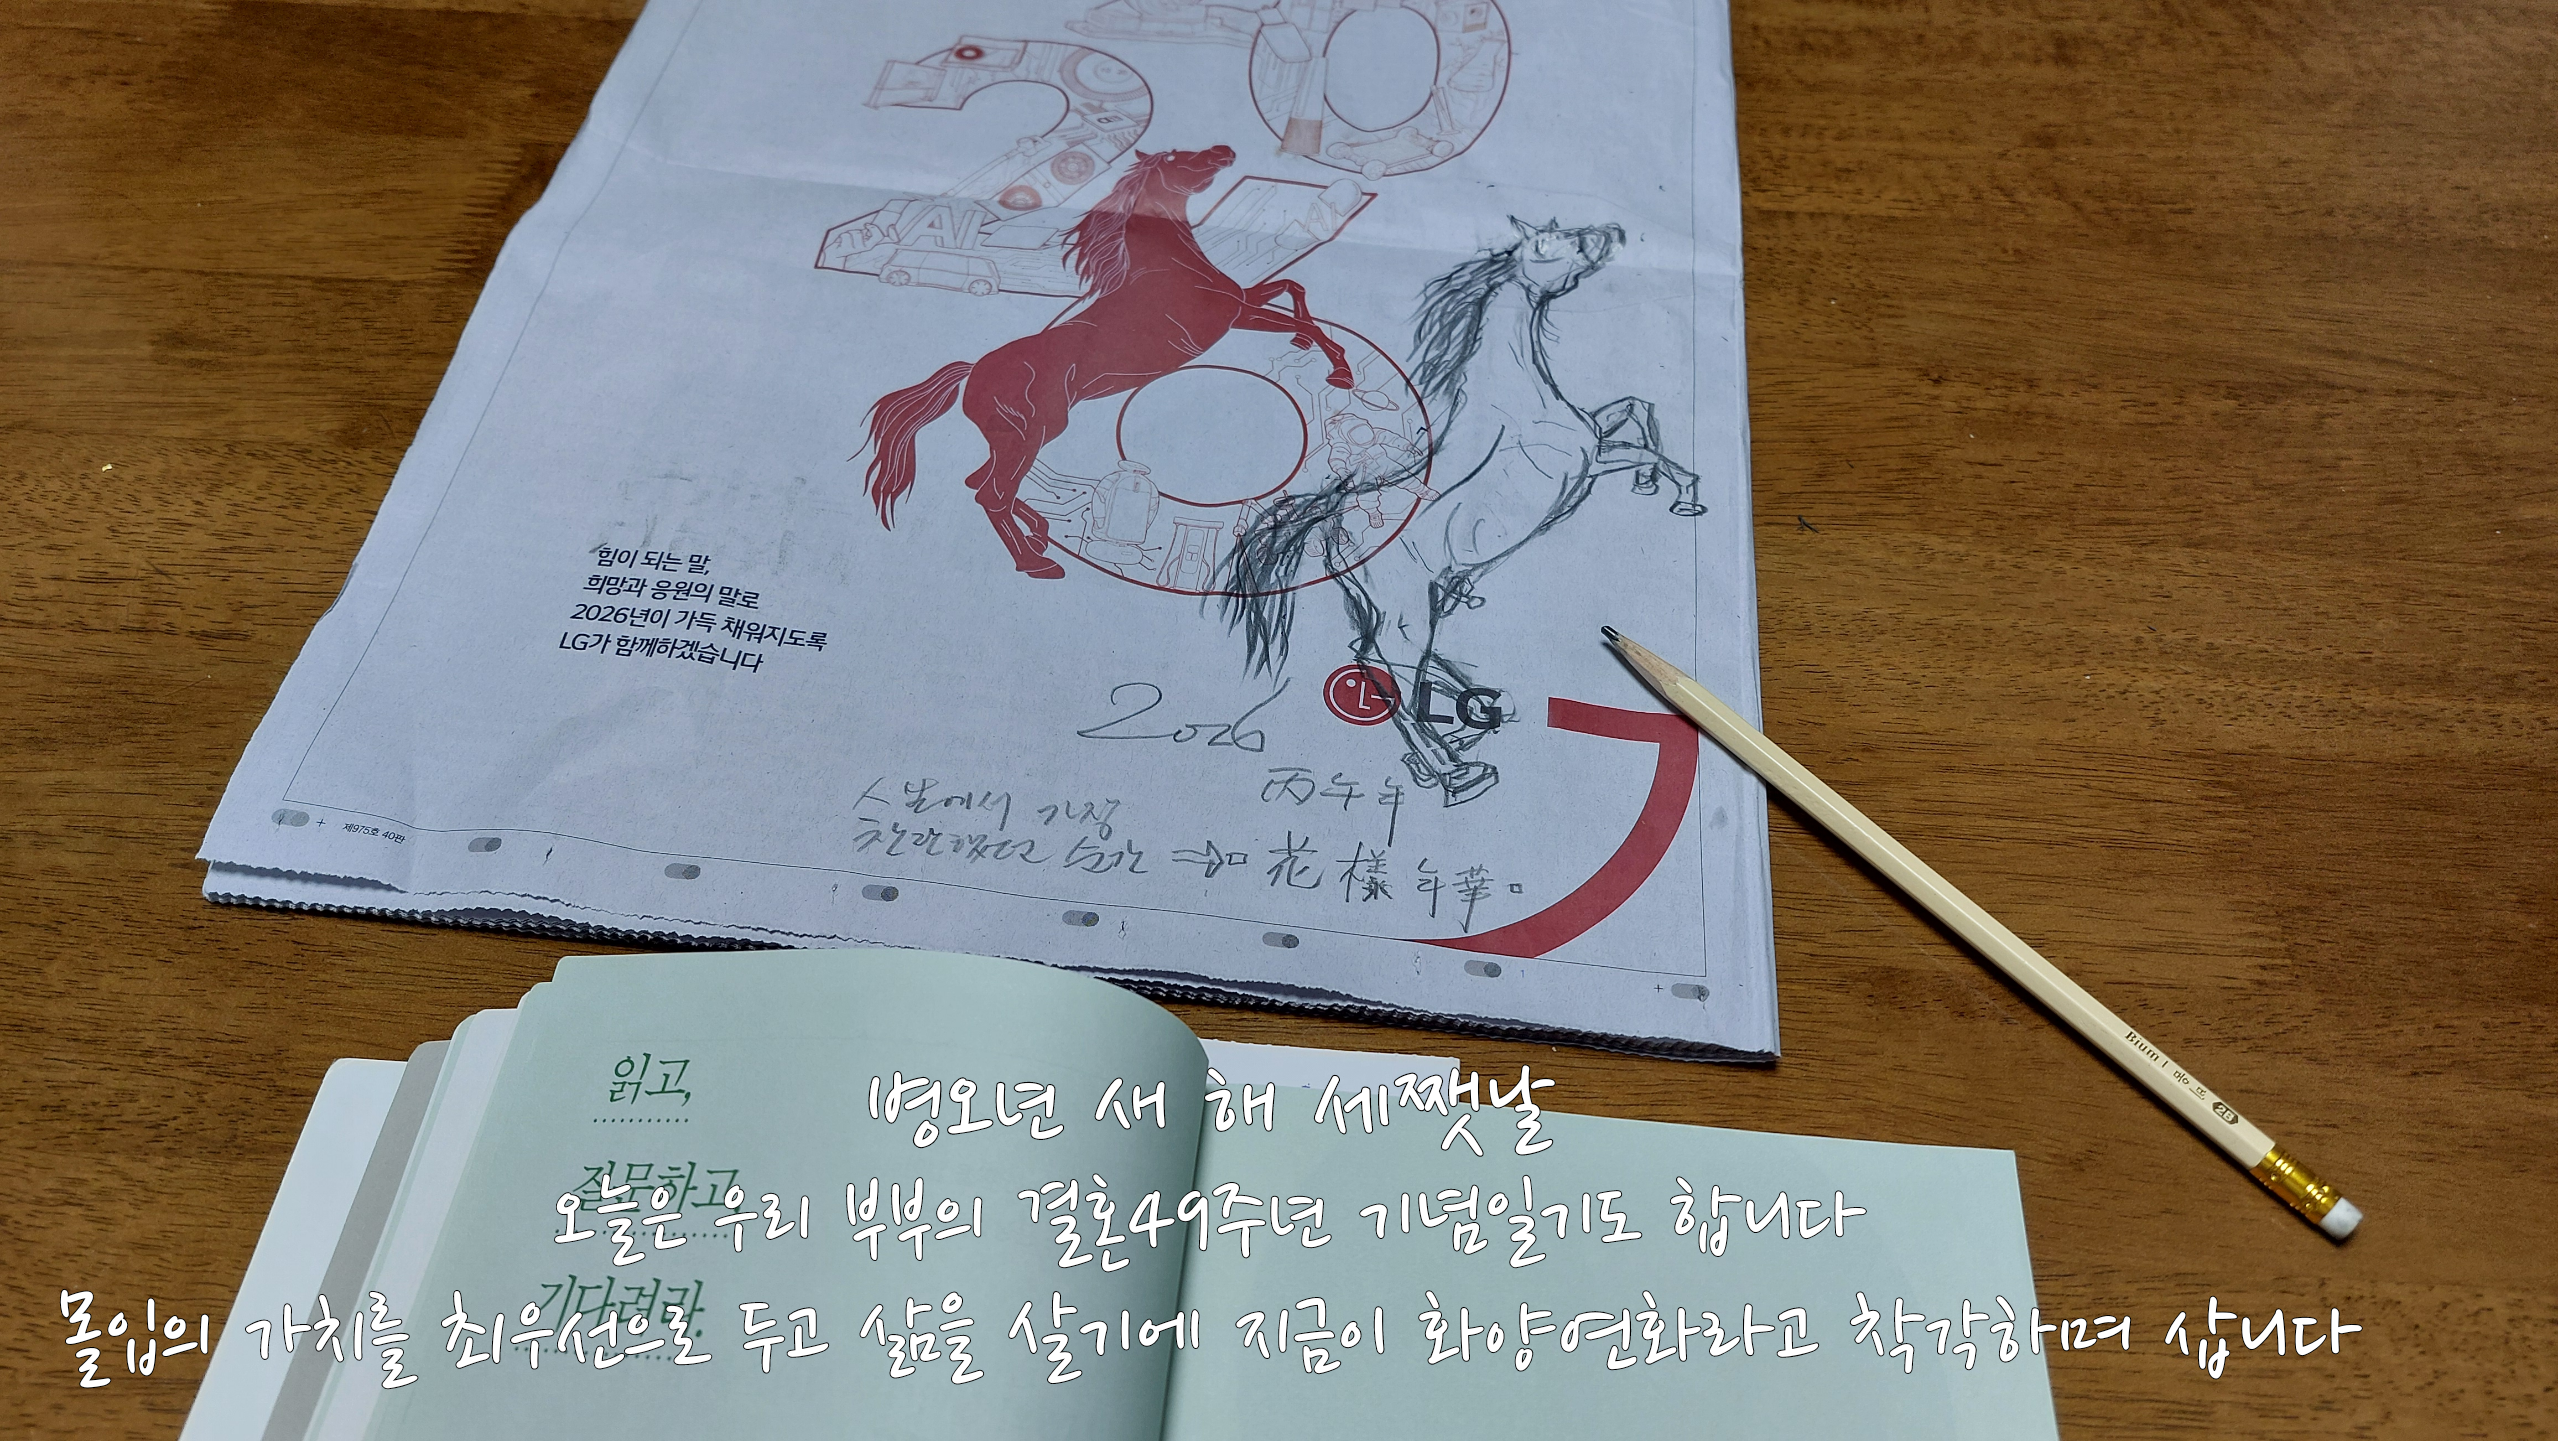 AI
힘이 되는 말,
희망과 응원의 말로
2026년이 가득 채워지도록
LG가 함께하겠습니다
LG
2026
丙午年
인생에서 가장
찬란했던 순간 ⇒ 花樣年華。
제975호 40판
Bium | 2B
읽고,
질문하고,
기다려라.
병오년 새 해 세쨋날
오늘은 우리 부부의 결혼49주년 기념일기도 합니다
몰입의 가치를 최우선으로 두고 삶을 살기에 지금이 화양연화라고 착각하며 삽니다